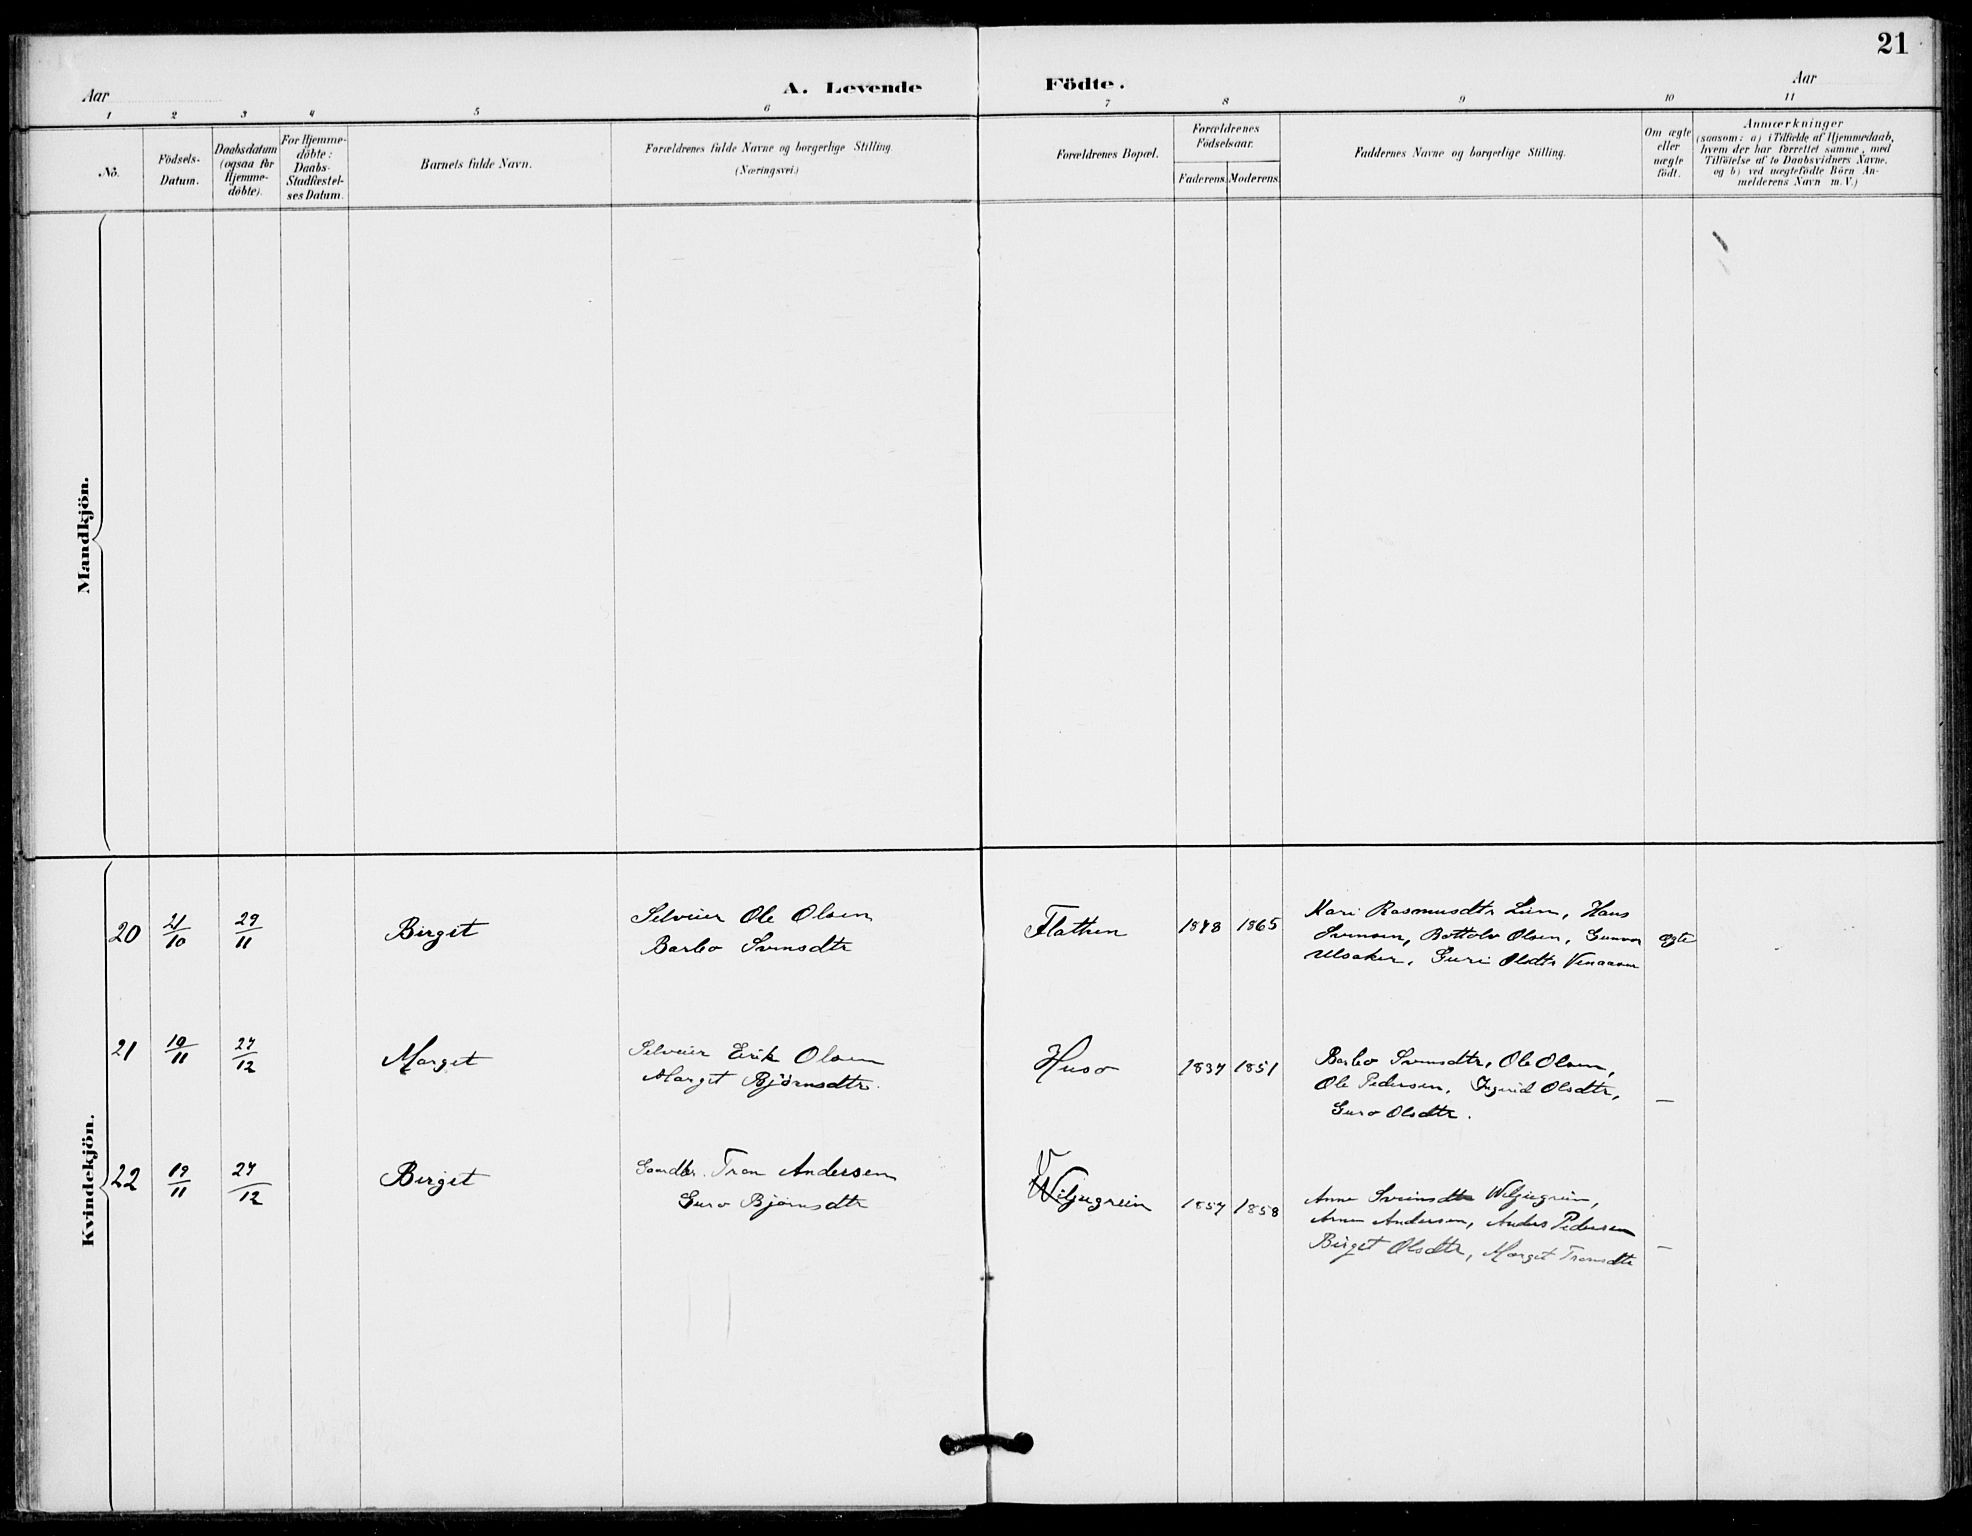 21
Aar
A. Levende Födte.
Aar
1 2 3 4 5 6 7 8 9 10 11
No.
Födsels-
Datum.
Daabsdatum
(ogsaa for
Hjemme-
döbte).
For Hjemme-
döbte:
Daabs-
Stadfæstel-
ses Datum.
Barnets fulde Navn.
Forældrenes fulde Navne og borgerlige Stilling
(Næringsvei.)
Forældrenes Bopæl.
Forældrenes
Födselsaar.
Faderens. Moderens.
Faddernes Navne og borgerlige Stilling.
Om ægte
eller
uægte
födt.
Anmærkninger
(saasom: a) i Tilfælde af Hjemmedaab,
hvem der har forrettet samme, med
Tilföielse af to Daabsvidners Navne,
og b) ved uægtefödte Börn An-
melderens Navn m. V.)
Mandkjön.
Kvindekjön.
20 21/10 29/11 Birget
Selveier Ole Olsen
Barbo Svensdtr
Flathen 1848 1865
Kari Rasmusdtr Lien, Hans
Svensen, Bottolv Olsen, Gunvor
Ulsaker, Guri Olsdtr
ægte
21 19/11 27/12 Marget
Selveier Erik Olsen
Marget Bjørnsdtr.
Huso 1837 1851
Barbo Svensdtr, Ole Olsen,
Ole Pedersen, Ingerid Olsdtr,
Guro Olsdtr.
—
22 19/11 27/12 Birget
Gaardbr. Tron Andersen
Guro Bjørnsdtr
Viljugrein 1857 1858
Anne Sveinsdtr Wiljugrein,
Arne Andersen, Anders Pedersen
Birget Olsdtr, Marget Tronsdtr
—